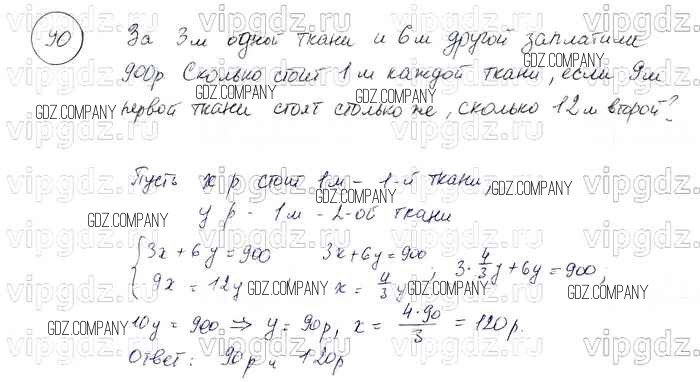 90 За 3м одной ткани и 6м другой заплатили
900р. Сколько стоит 1 м каждой ткани, если 9м
первой ткани стоят столько же, сколько 12м второй?
Пусть x р стоит 1м – 1-й ткани,
y р - 1м - 2-ой ткани
{3x + 6y = 900 3x + 6y = 900
9x = 12y, x = 4/3 y, 3·4/3y + 6y = 900,
10y = 900 ⇒ y = 90р, x = 4·90/3 = 120р.
Ответ: 90р и 120р
vipgdz.ru
GDZ.COMPANY